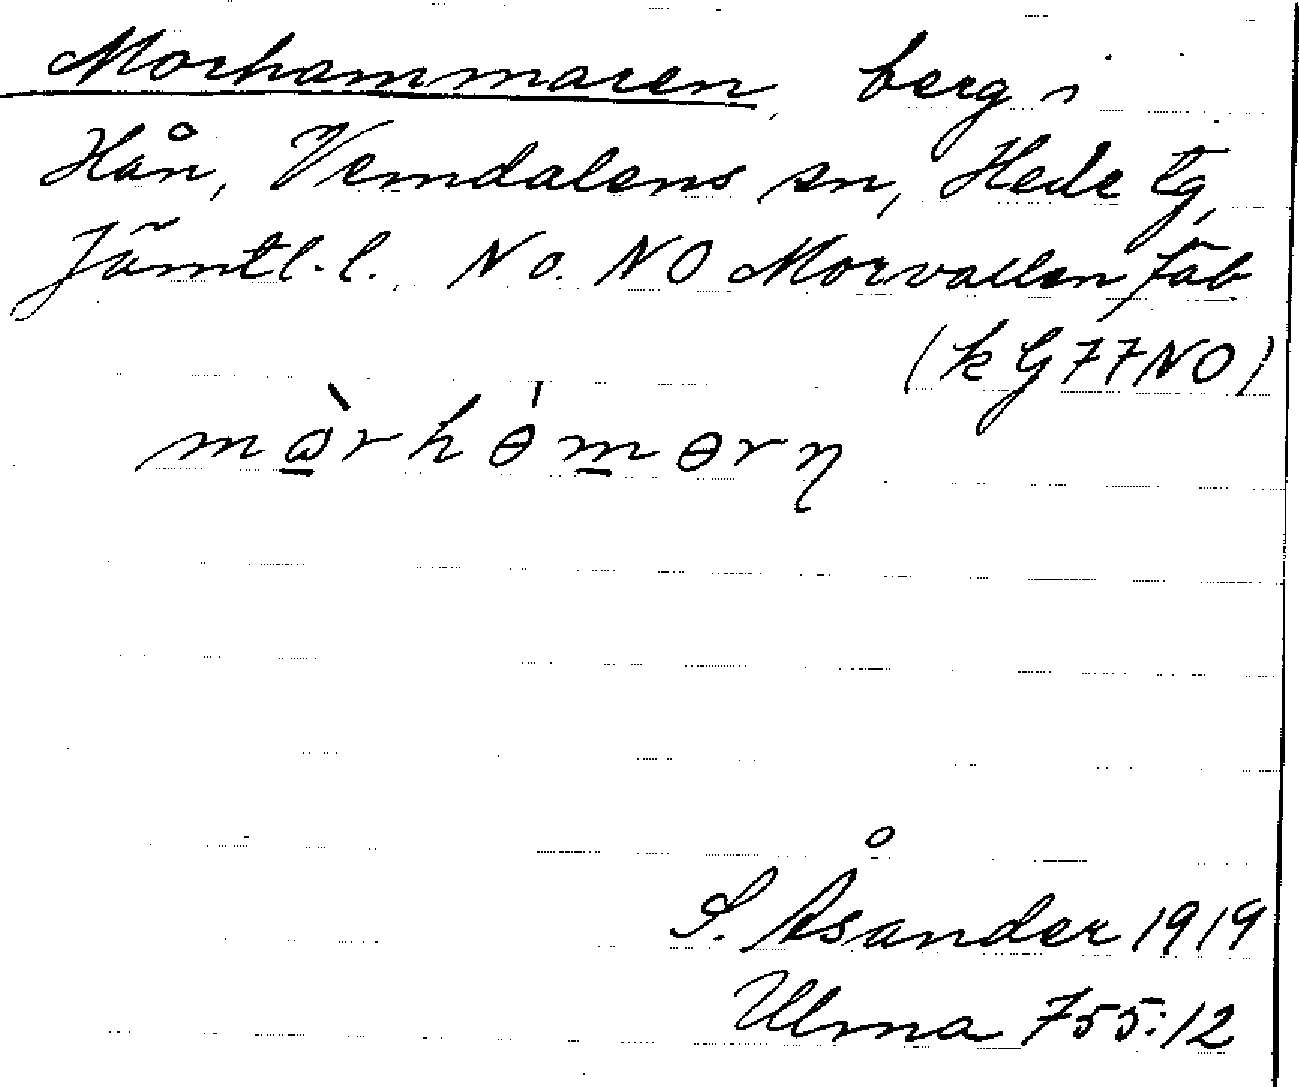 Morhammaren, berg i
Hån, Vemdalens sn, Hede tg,
Jämtl. l. No. NO Morvallen fäb
(k G 77 NO)
S. Åsander 1919
Ulma 755:12